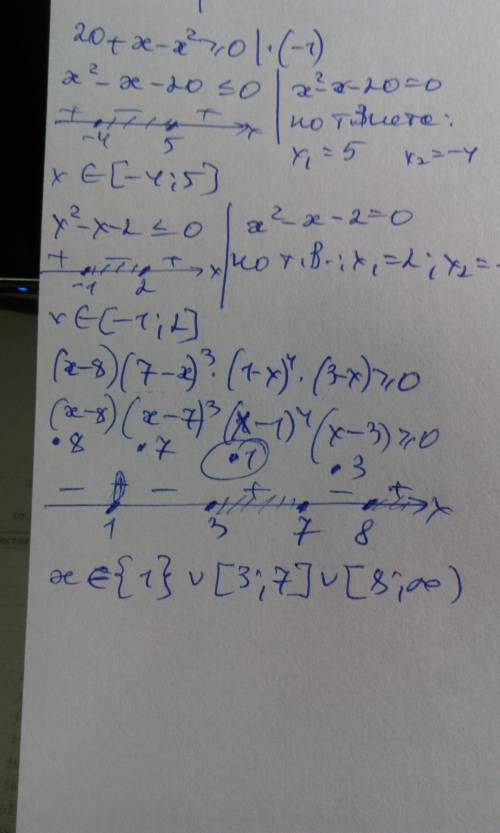 20+x-x²≥0|·(-1)
x²-x-20≤0 | x²-x-20=0
+ - + x
-4 5
по т.Виета:
x₁=5 x₂=-4
x∈[-4;5]
x²-x-2≤0 | x²-x-2=0
+ - + x
-1 2
по т.В.; x₁=2; x₂=-
x∈[-1;2]
(x-8)(7-x)³·(1-x)⁴·(3-x)≥0
(x-8)(x-7)³(x-1)⁴(x-3)≥0
·8 ·7 ·1 ·3
- - + - + x
1 3 7 8
x∈{1}∪[3;7]∪[8;∞)